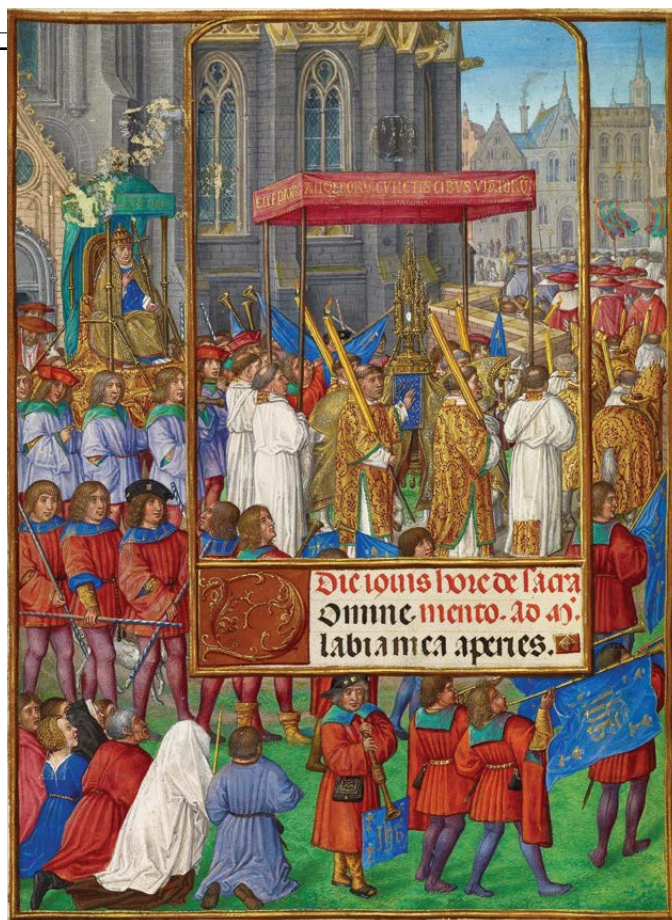 ECCE PANIS ANGELORV CVNCTIS CIBVS VIATORV
Die iouis hore de sacra
Domine. mento. Ad m.
labia mea aperies.
Jhs